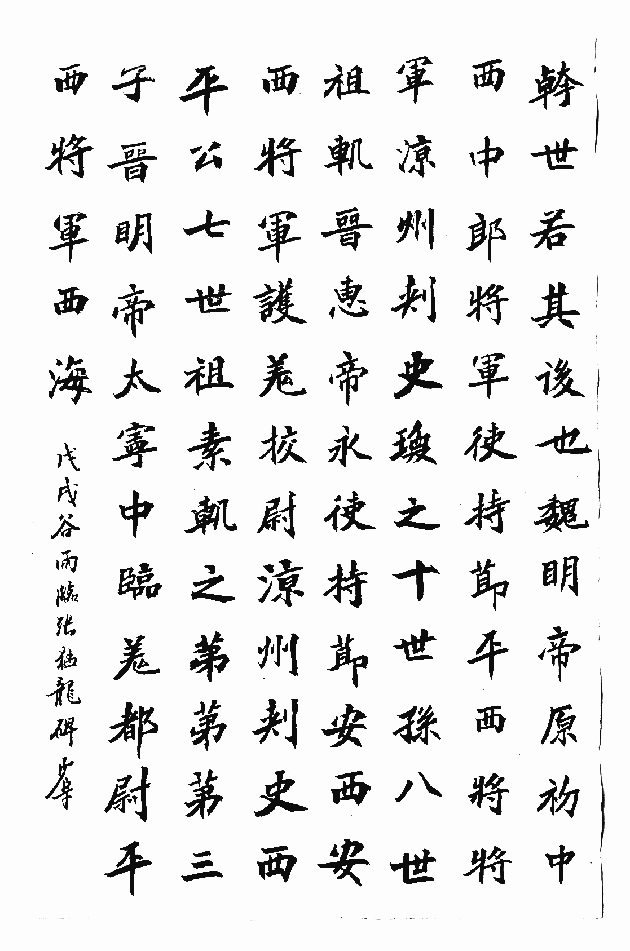 幹世若其後也魏明帝原初中
西中郎將軍使持節平西將將
軍涼州刾史瓊之十世孫八世
祖軌晉惠帝永使持節安西安
西將軍護羌挍尉涼州刾史西
平公七世祖素軌之第第第三
子晉明帝太寧中臨羌都尉平
西將軍西海
戊戌谷雨臨張猛龍碑